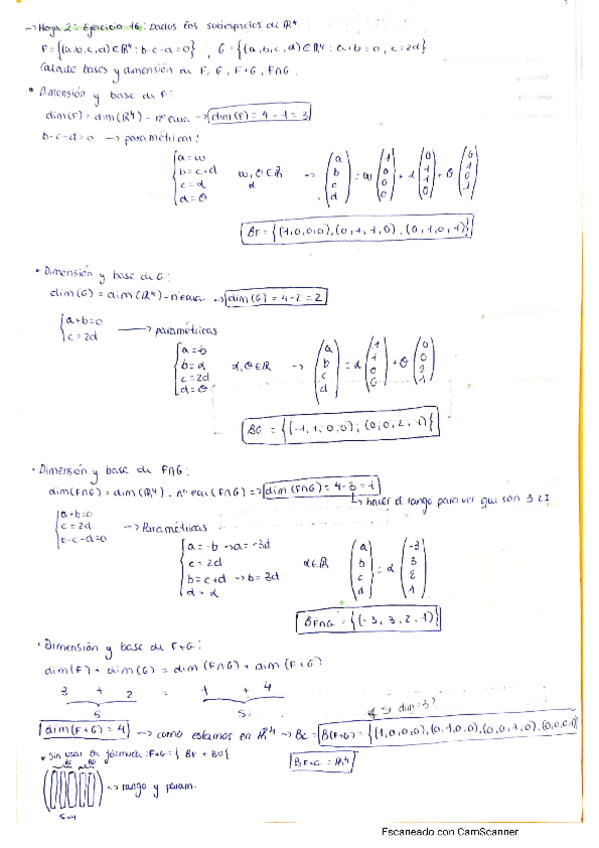 → Hoja 2: Ejercicio 16: Dados los subespacios de ℝ⁴
F={(a,b,c,d)∈ℝ⁴: b-c-a=0}, G={(a,b,c,d)∈ℝ⁴: a+b=0, c=2d}
Calcule bases y dimensión de F, G, F+G, F∩G.
• Dimensión y base de F:
dim(F) = dim(ℝ⁴) - nº ecua → dim(F) = 4-1 = 3
b-c-d=0 → paramétricas:
{a=w
b=c+d
c=α
d=θ
w,θ∈ℝ
α
→ (a b c d) = w (1 0 0 0) + α (0 1 1 0) + θ (0 1 0 1)
BF = {(1,0,0,0),(0,1,1,0),(0,1,0,1)}
• Dimensión y base de G:
dim(G) = dim(ℝ⁴) - nº ecua → dim(G) = 4-2 = 2
{a+b=0
c=2d
→ paramétricas
{a=-b
b=α
c=2d
d=θ
α,θ∈ℝ → (a b c d) = α (-1 1 0 0) + θ (0 0 2 1)
BG = {(-1,1,0,0);(0,0,2,1)}
• Dimensión y base de F∩G:
dim(F∩G) = dim(ℝ⁴) - nº ecu(F∩G) => dim(F∩G) = 4-3 = 1
↳ hacer el rango para ver que son 3 LI
{a+b=0
c=2d
b-c-d=0
→ Paramétricas
{a=-b → a=-3d
c=2d
b=c+d → b=3d
d=α
α∈ℝ (a b c d) = α (-3 3 2 1)
BF∩G = {(-3,3,2,1)}
• Dimensión y base de F+G:
dim(F) + dim(G) = dim(F∩G) + dim(F+G)
3 + 2 = 1 + 4
5 5
¿Si dim=3?
dim(F+G) = 4 → como estamos en ℝ⁴ → Bc = B(F+G) = {(1,0,0,0),(0,1,0,0),(0,0,1,0),(0,0,0,1)}
• Sin usar la fórmula: F+G = {BF + BG}
BF+G = ℝ⁴
→ rango y param.
5x4
Escaneado con CamScanner